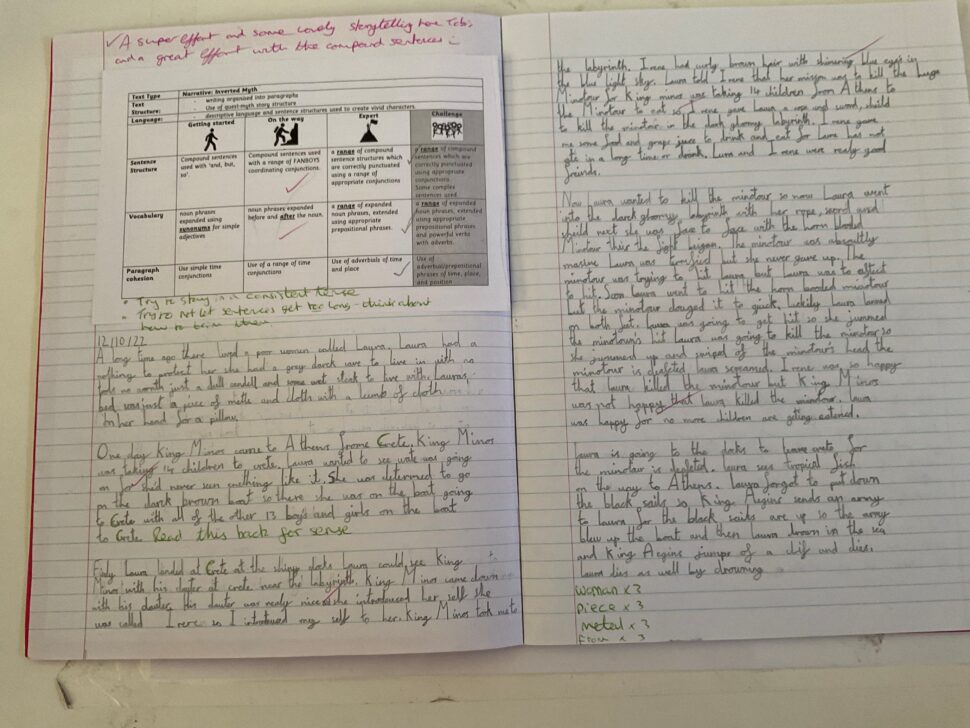 ✓ A super effort and some lovely storytelling here
and a great effort with the compound sentences
Text Type
Narrative: Inverted Myth
Text
Structure:
- writing organised into paragraphs
- Use of quest-myth story structure
Language:
- descriptive language and sentence structures used to create vivid characters
Getting started
On the way
Expert
Challenge
Sentence
Structure
Compound sentences
used with 'and, but,
so'.
Compound sentences used
with a range of FANBOYS
coordinating conjunctions.
a range of compound
sentence structures which
are correctly punctuated
using a range of
appropriate conjunctions
a range of compound
sentences which are
correctly punctuated
using appropriate
conjunctions.
Some complex
sentences used.
Vocabulary
noun phrases
expanded using
synonyms for simple
adjectives
noun phrases expanded
before and after the noun.
a range of expanded
noun phrases, extended
using appropriate
prepositional phrases.
a range of expanded
noun phrases, extended
using appropriate
prepositional phrases
and powerful verbs
with adverbs.
Paragraph
cohesion
Use simple time
conjunctions
Use of a range of time
conjunctions
Use of adverbials of time
and place
Use of
adverbial/prepositional
phrases of time, place,
and position
• Try to stay in a consistent tense
• Try to not let sentences get too long - think about
how to them
12/10/22
A long time ago there lived a poor women called Laura, Laura had a
nothing to protect her she had a gray darck cave to live in with no
no just a and some wet to live with. Lauras
bed was just a piece of and cloth with a of cloth
on her head for a pillow.
One day King Minos came to Athens frome Crete, King Minos
was taking 14 children to crete. Laura wanted to see wate was going
on for shid never seen like it. She was determined to go
on the darck brown boat so there she was on the boat going
to Crete with all of the other 13 boys and girls on the boat
to Crete Read this back for sense
Laura landed at Crete at the docks Laura could see King
Minos with his at crete near the labyrinth. King Minos came down
with his his was realy nice she introduced her self she
was called Irene so I introduced my self to her. King Minos took me to
the labyrinth. Irene had curly brown hair with shimering blue eye's in
the blue light sky. Laura told Irene that her mission was to kill the huge
Minotour for King minos was taking 14 children from Athens to
the Minotaur to eat so Irene gave Laura a rope and sword, shild
to kill the minotaur in the dark gloomy labyrinth. Irene gave
me some food and grape juice to drinck and eat for Laura has not
in a long time or dranck. Laura and Irene were really good
freinds.
Now Laura wanted to kill the minotour so now Laura went
into the darck gloomy labyrinth with her rope, sword and
sheild next she was face to face with the horn
Minotour then the fight began. The minotour was
Laura was but she never gave up. The
minotour was trying to hit Laura but Laura was to
to hit. Soon Laura went to hit the horn minotour
but the minotour douged it to quick, luckily Laura landed
on both feet. Laura was going to get hit so she
the minotour's hit Laura was going to kill the minotour so
she jummed up and of the minotour's head the
minotour is Laura screamed. Irene was so happy
that Laura killed the minotour but King Minos
was not happy that Laura killed the minotour. Laura
was happy for no more children are geting eatened.
Laura is going to the docks to leave crete for
the minotaur is Laura sees tropical fish
on the way to Athens. Laura forgot to put down
the black sails so King Aegins sends an army
to Laura for the black sails are up so the army
blew up the boat and then Laura drown in the sea
and King Aegins jumps of a clif and dies.
Laura dies as well by drowning
woman x 3
piece x 3
metal x 3
from x 3